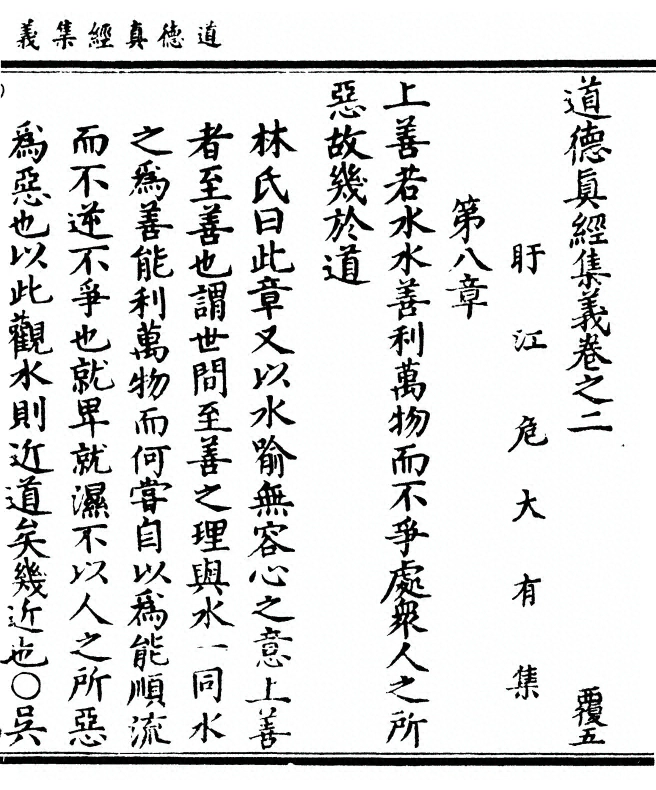 道德真經集義
道德眞經集義卷之二
覆五
盱江危大有集
第八章
上善若水水善利萬物而不爭處衆人之所
惡故幾於道
林氏曰此章又以水喻無容心之意上善
者至善也謂世間至善之理與水一同水
之爲善能利萬物而何嘗自以爲能順流
而不逆不爭也就卑就濕不以人之所惡
爲惡也以此觀水則近道矣幾近也○吳